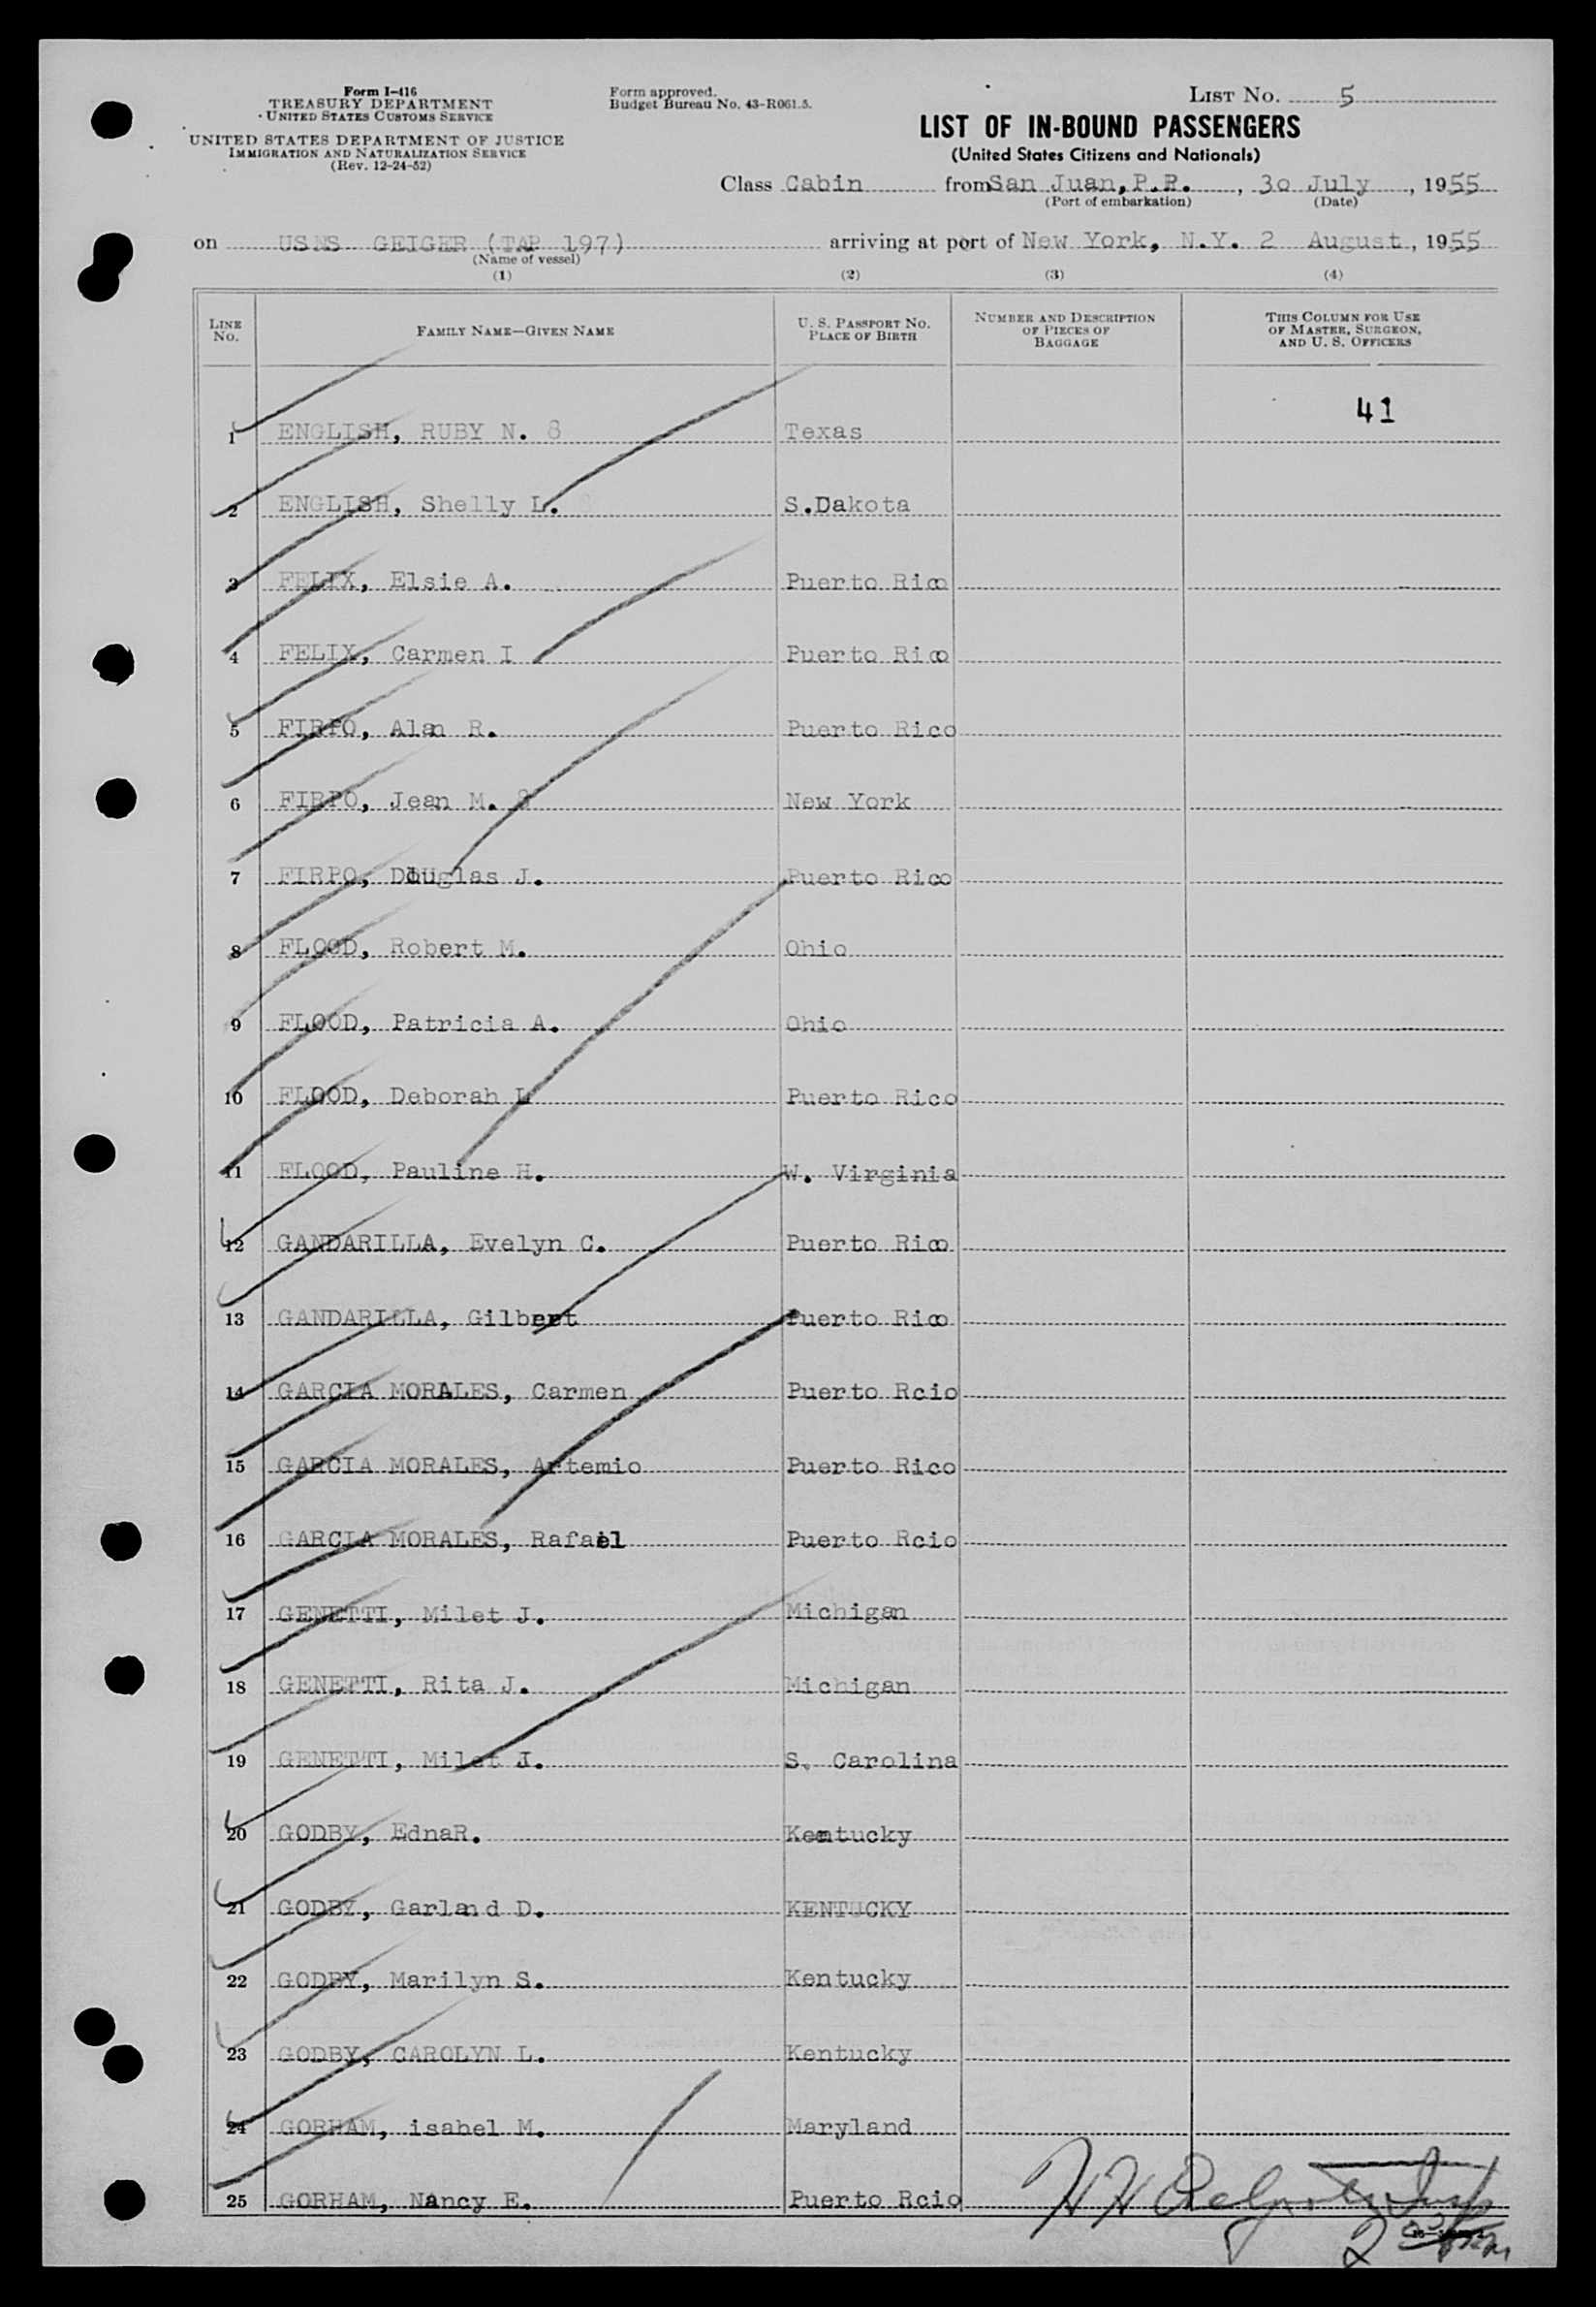 Form I-416
TREASURY DEPARTMENT
UNITED STATES CUSTOMS SERVICE
UNITED STATES DEPARTMENT OF JUSTICE
IMMIGRATION AND NATURALIZATION SERVICE
(Rev. 12-24-52)
Form approved.
Budget Bureau No. 43-R061.5.
LIST NO. 5
LIST OF IN-BOUND PASSENGERS
(United States Citizens and Nationals)
Class Cabin from San Juan, P.R. , 30 July , 1955
(Port of embarkation) (Date)
on USNS GEIGER (TAP 197) arriving at port of New York, N.Y. 2 August , 1955
(Name of vessel)
(1) (2) (3) (4)
LINE NO. FAMILY NAME—GIVEN NAME U. S. PASSPORT NO. PLACE OF BIRTH NUMBER AND DESCRIPTION OF PIECES OF BAGGAGE THIS COLUMN FOR USE OF MASTER, SURGEON, AND U. S. OFFICERS
41
1 ENGLISH, RUBY N. 8 Texas
2 ENGLISH, Shelly L. S.Dakota
3 FELIX, Elsie A. Puerto Rico
4 FELIX, Carmen I Puerto Rico
5 FIRPO, Alan R. Puerto Rico
6 FIRPO, Jean M. 8 New York
7 FIRPO, Douglas J. Puerto Rico
8 FLOOD, Robert M. Ohio
9 FLOOD, Patricia A. Ohio
10 FLOOD, Deborah L Puerto Rico
11 FLOOD, Pauline H. W. Virginia
12 GANDARILLA, Evelyn C. Puerto Rico
13 GANDARILLA, Gilbert Puerto Rico
14 GARCIA MORALES, Carmen Puerto Rcio
15 GARCIA MORALES, Artemio Puerto Rico
16 GARCIA MORALES, Rafael Puerto Rcio
17 GENETTI, Milet J. Michigan
18 GENETTI, Rita J. Michigan
19 GENETTI, Milet J. S. Carolina
20 GODBY, EdnaR. Kentucky
21 GODBY, Garland D. KENTUCKY
22 GODBY, Marilyn S. Kentucky
23 GODBY, CAROLYN L. Kentucky
24 GORHAM, isabel M. Maryland
25 GORHAM, Nancy E. Puerto Rcio